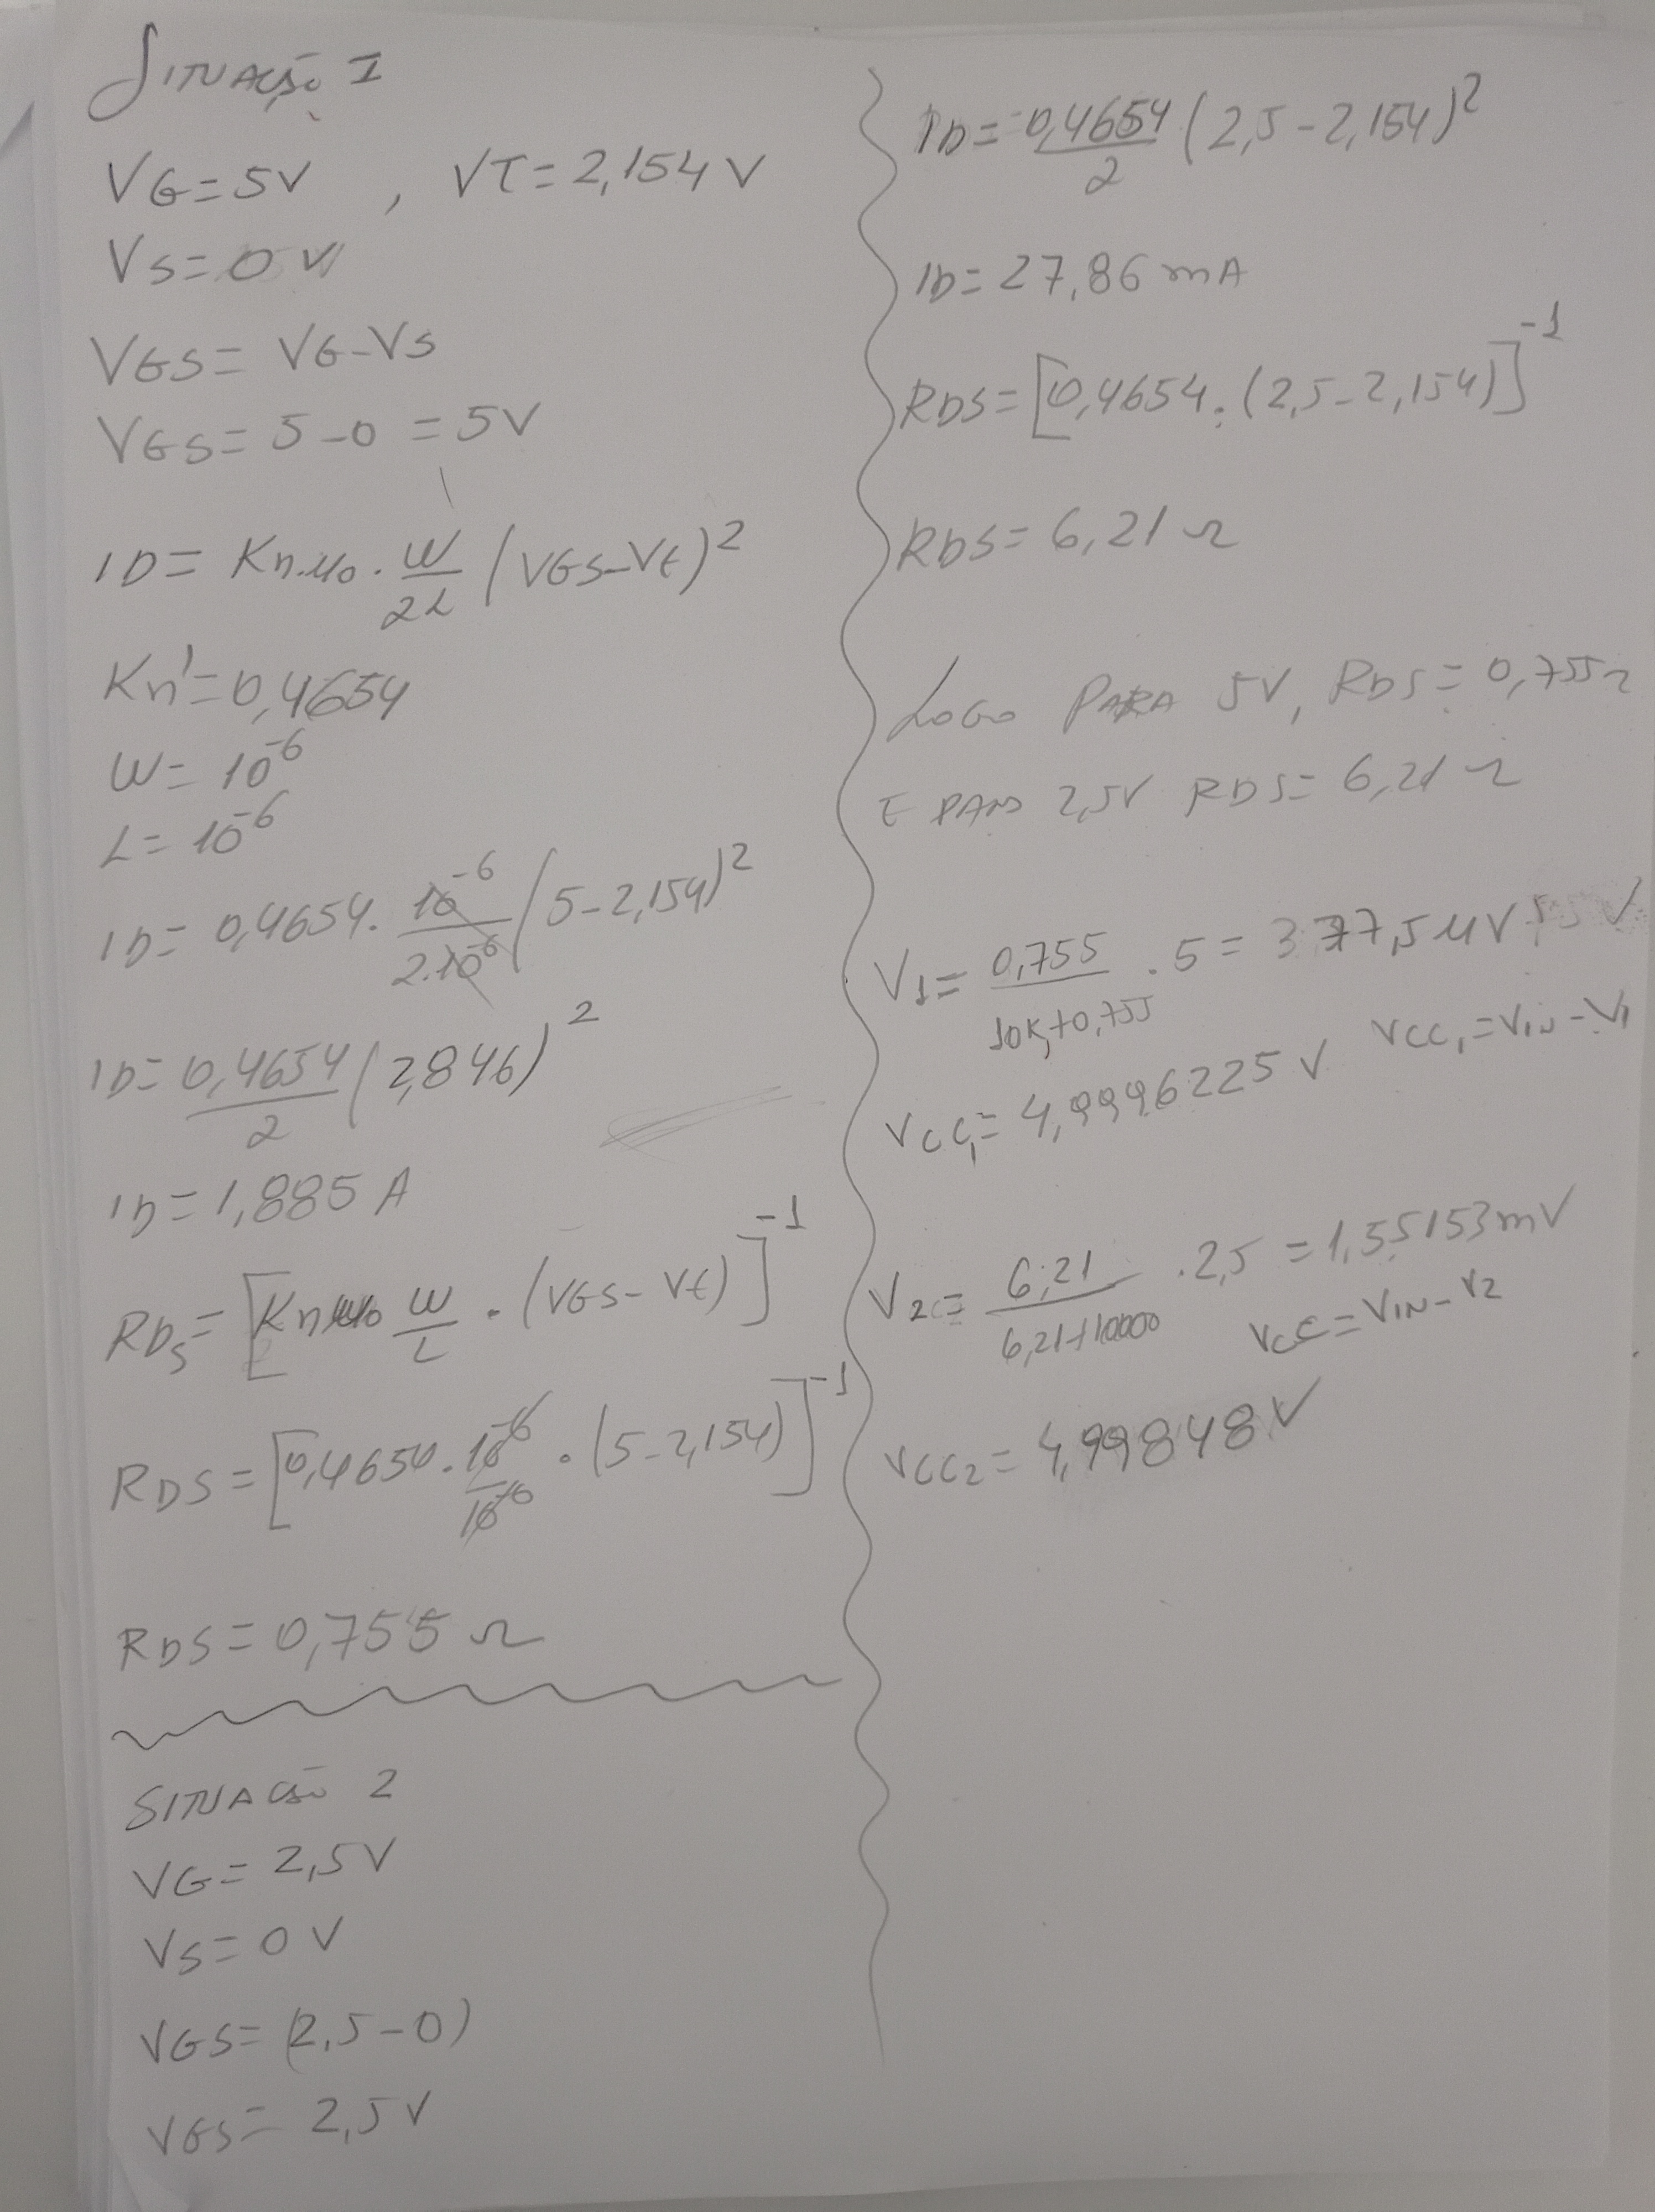 SITUAÇÃO I
VG = 5V , VT = 2,154 V
VS = 0 V
VGS = VG - VS
VGS = 5 - 0 = 5V
ID = Kn.μo . W/2L (VGS - Vt)²
Kn' = 0,4654
W = 10^-6
L = 10^-6
ID = 0,4654 . 10^-6/2.10^-6 (5 - 2,154)²
ID = 0,4654/2 (2,846)²
ID = 1,885 A
RDS = [Kn μo W/L . (VGS - Vt)]^-1
RDS = [0,4654 . 10^-6/10^-6 . (5 - 2,154)]^-1
RDS = 0,755 Ω
SITUAÇÃO 2
VG = 2,5V
VS = 0 V
VGS = (2,5 - 0)
VGS = 2,5 V
ID = 0,4654/2 (2,5 - 2,154)²
ID = 27,86 mA
RDS = [0,4654 . (2,5 - 2,154)]^-1
RDS = 6,21 Ω
LOGO PARA 5V, RDS = 0,755 Ω
E PARA 2,5V RDS = 6,21 Ω
V1 = 0,755/10K+0,755 . 5 = 377,5 μV
VCC1 = VIN - V1
VCC1 = 4,9996225 V
V2 = 6,21/6,21+10000 . 2,5 = 1,55153 mV
VCC = VIN - V2
VCC2 = 4,99848 V